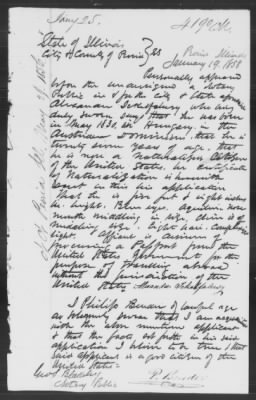 Jany 25.
State of Illinois
City & County of Peoria } ss
Peoria Illinois
January 19. 1858
Personally appeared
before the undersigned a Notary
Public in & for the City & State aforesaid
who being
duly sworn says that he was born
in May 1830 in Hungary in the
Austrian Dominion, that he is
twenty seven years of age, that
he is now a Naturalized Citizen
of the United States, his Certificate
of Naturalization is herewith
sent in this his application
That he is five feet & eight inches
in hight. Blue eyes. Aquiline nose
mouth middling in size, Chin is of
middling size. Light hair. Complexion
light. Affiant is desirous of
procuring a Passport from the
United States Government for the
purpose of travelling abroad
without the jurisdiction of the
United States
I Philip Bender of lawful age
do solemnly swear that I am acquainted
with the above mentioned applicant
& that the facts set forth in his said
application I believe to be true, & that
said applicant is a good citizen of the
United States
P. Bender
Notary Public